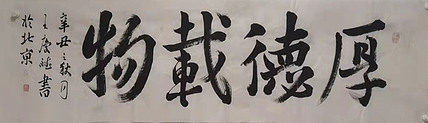 厚德載物
辛丑之秋月
書
於北京